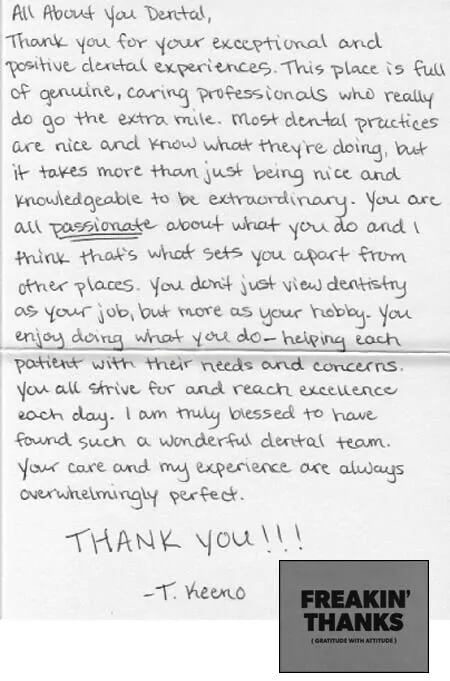 All About You Dental,
Thank you for your exceptional and
positive dental experiences. This place is full
of genuine, caring professionals who really
do go the extra mile. Most dental practices
are nice and know what they're doing, but
it takes more than just being nice and
knowledgeable to be extraordinary. You are
all passionate about what you do and I
think that's what sets you apart from
other places. You don't just view dentistry
as your job, but more as your hobby. You
enjoy doing what you do - helping each
patient with their needs and concerns.
You all strive for and reach excellence
each day. I am truly blessed to have
found such a wonderful dental team.
Your care and my experience are always
overwhelmingly perfect.
THANK YOU!!!
- T. Keeno
FREAKIN'
THANKS
( GRATITUDE WITH ATTITUDE )